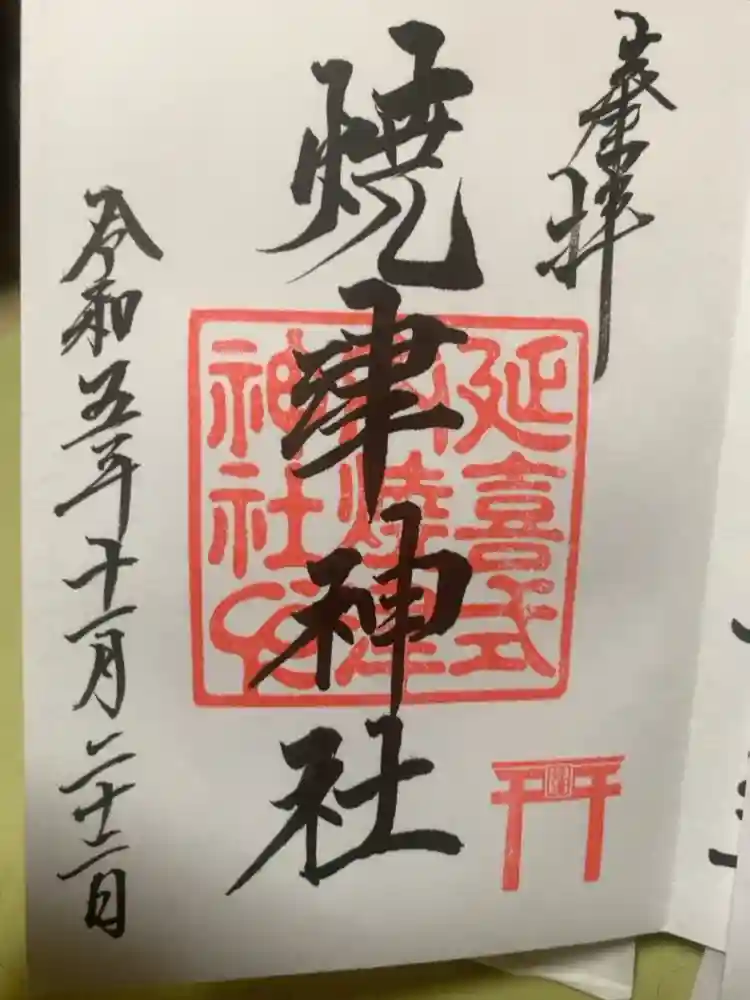 奉拝
焼津神社
延喜式
内燒津
神社印
令和五年十一月二十二日